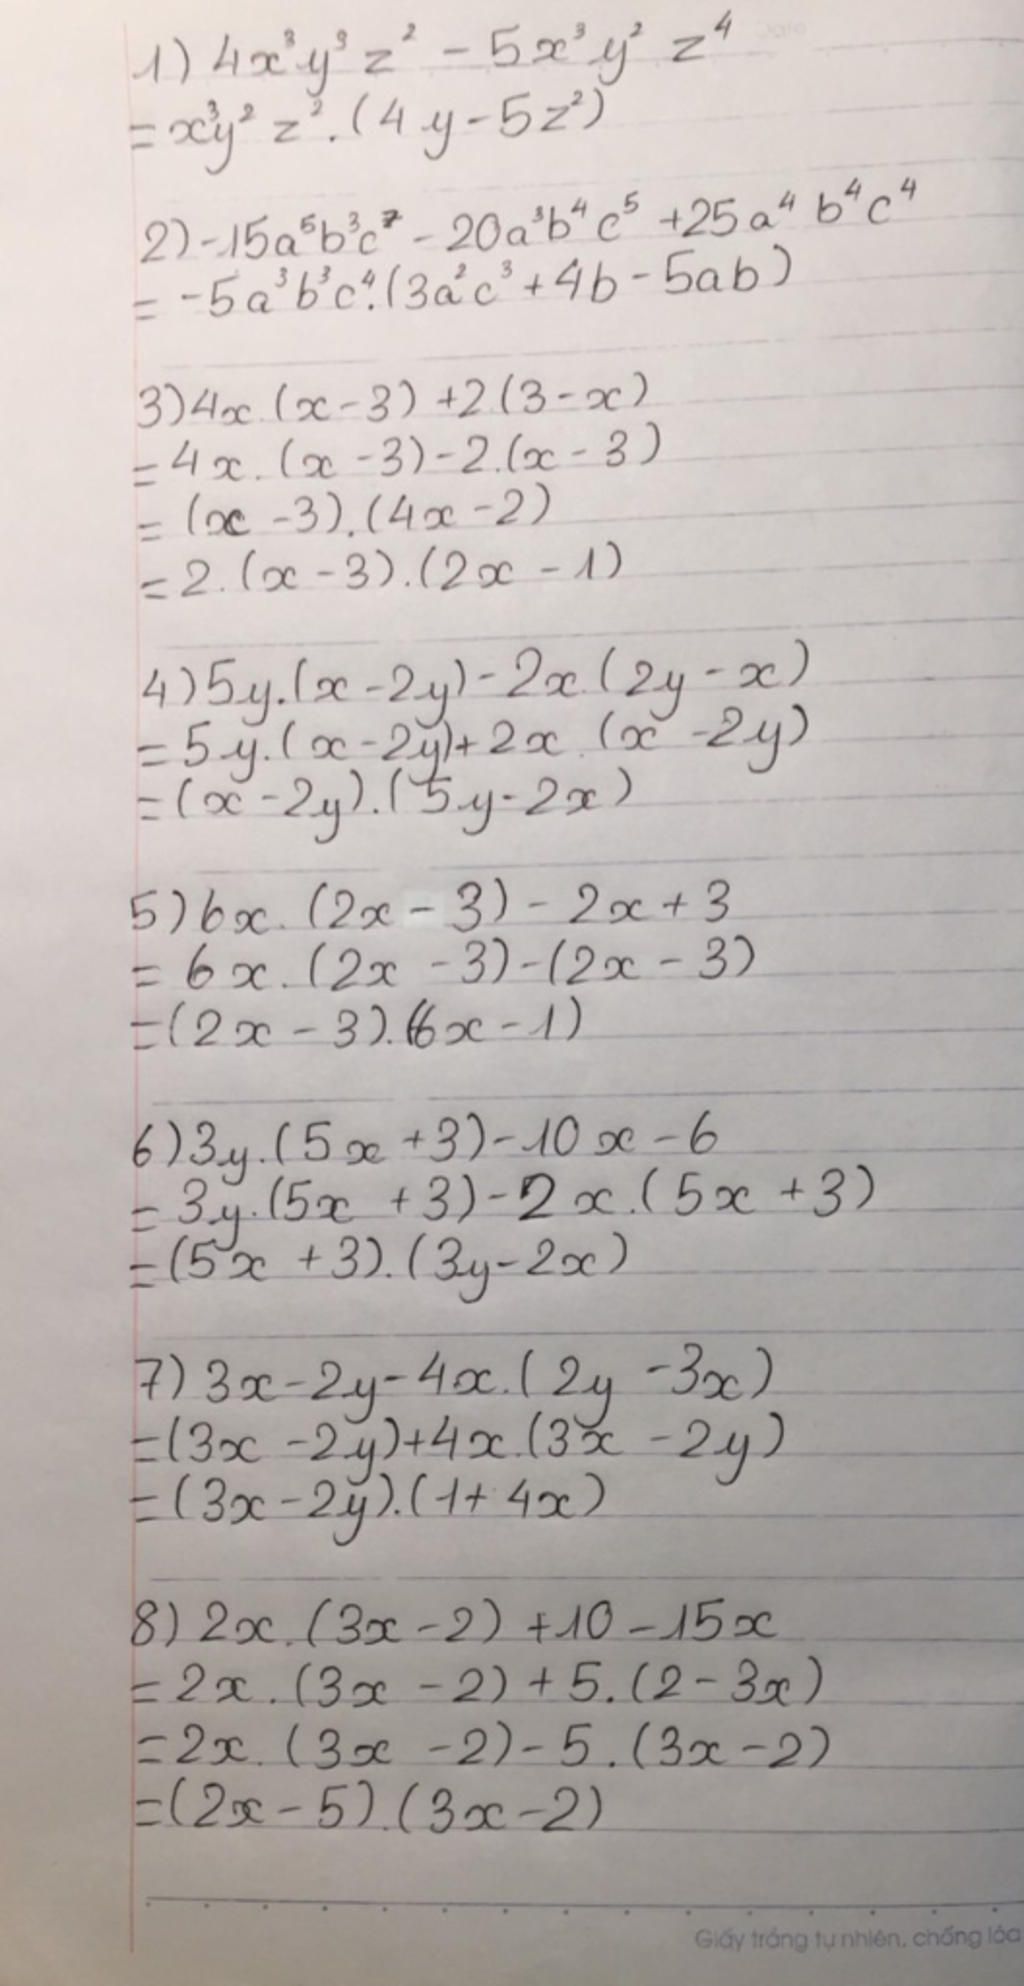 1) 4x³y³z² - 5x³y² z⁴
= x³y² z².(4y-5z²)
2) -15a⁵b³c⁷ - 20a³b⁴c⁵ +25a⁴ b⁴c⁴
= -5a³b³c⁴.(3a²c³+4b-5ab)
3) 4x.(x-3) +2(3-x)
= 4x.(x-3)-2.(x-3)
= (x-3).(4x-2)
= 2.(x-3).(2x-1)
4) 5y.(x-2y)-2x.(2y-x)
= 5y.(x-2y)+2x.(x-2y)
= (x-2y).(5y-2x)
5) 6x.(2x-3)-2x+3
= 6x.(2x-3)-(2x-3)
= (2x-3).(6x-1)
6) 3y.(5x+3)-10x-6
= 3y.(5x+3)-2x.(5x+3)
= (5x+3).(3y-2x)
7) 3x-2y-4x.(2y-3x)
= (3x-2y)+4x.(3x-2y)
= (3x-2y).(1+4x)
8) 2x.(3x-2)+10-15x
= 2x.(3x-2)+5.(2-3x)
= 2x.(3x-2)-5.(3x-2)
= (2x-5).(3x-2)
Giấy trắng tự nhiên, chống lóa